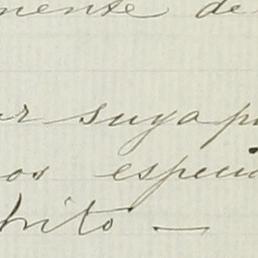 mente de
suya p
os especia
hito —